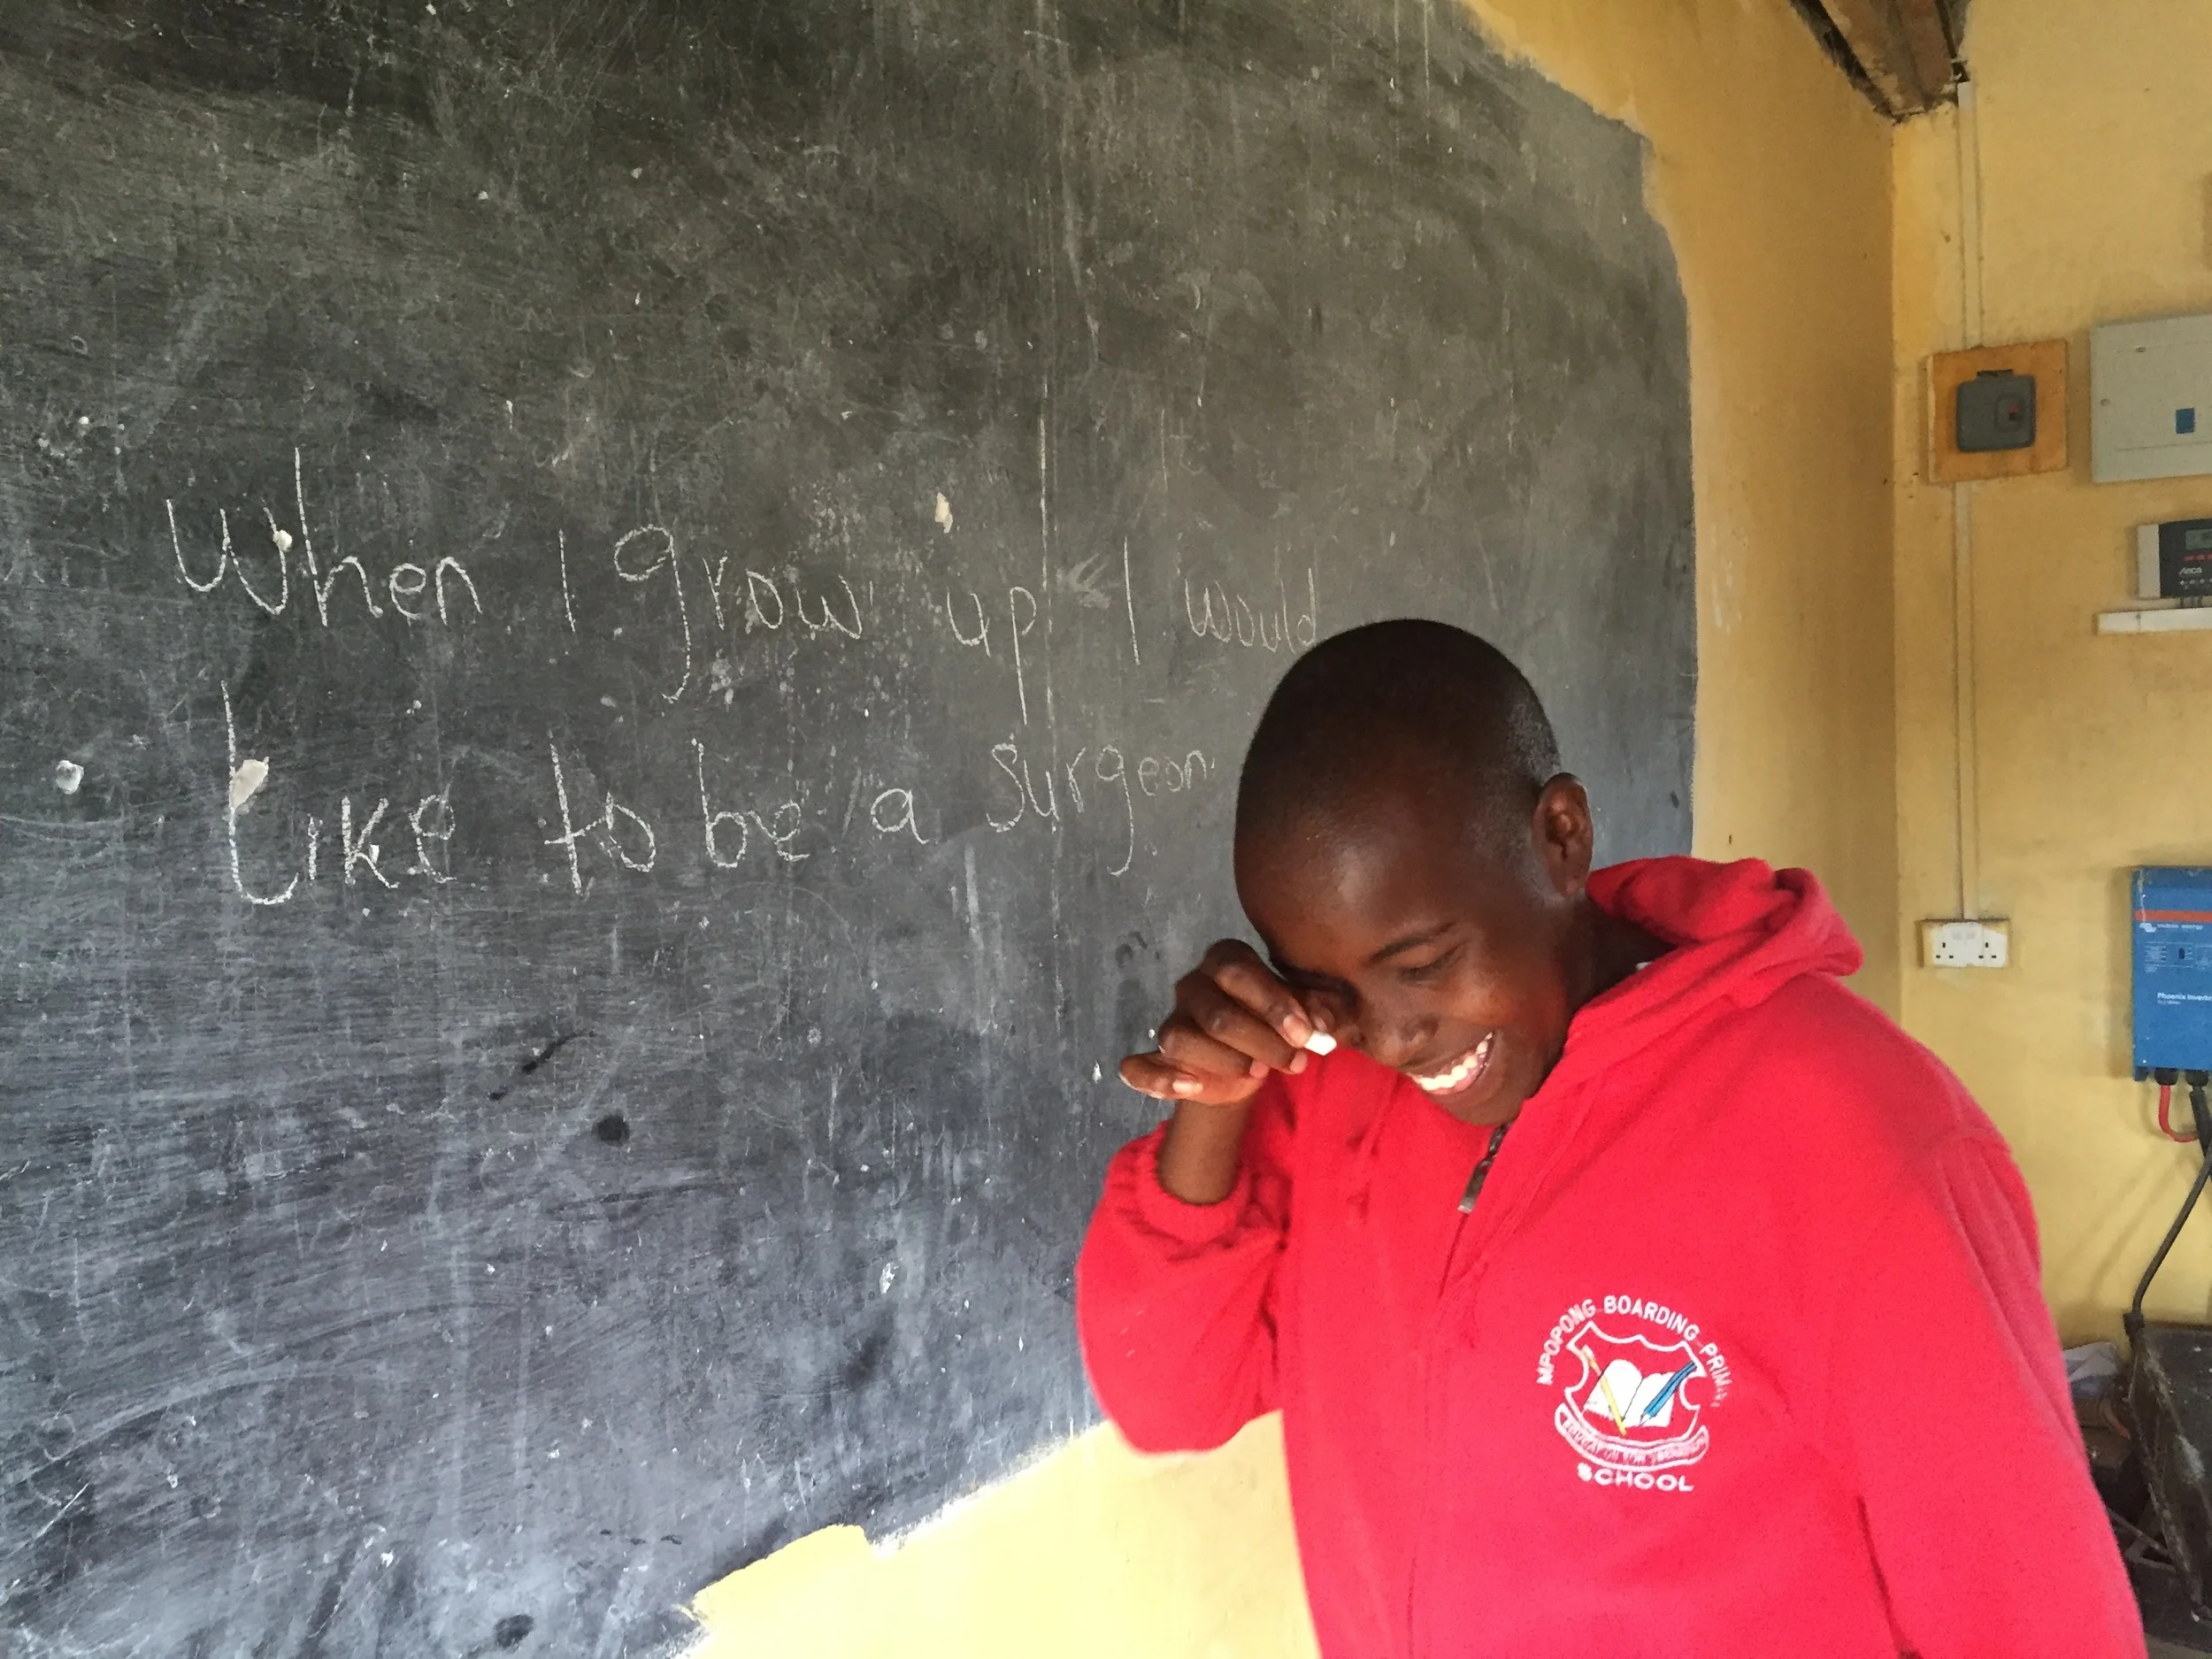 When I grow up I would
Like to be a surgeon
MPOPONG BOARDING PRIMARY
SCHOOL
Phoenix Inverter